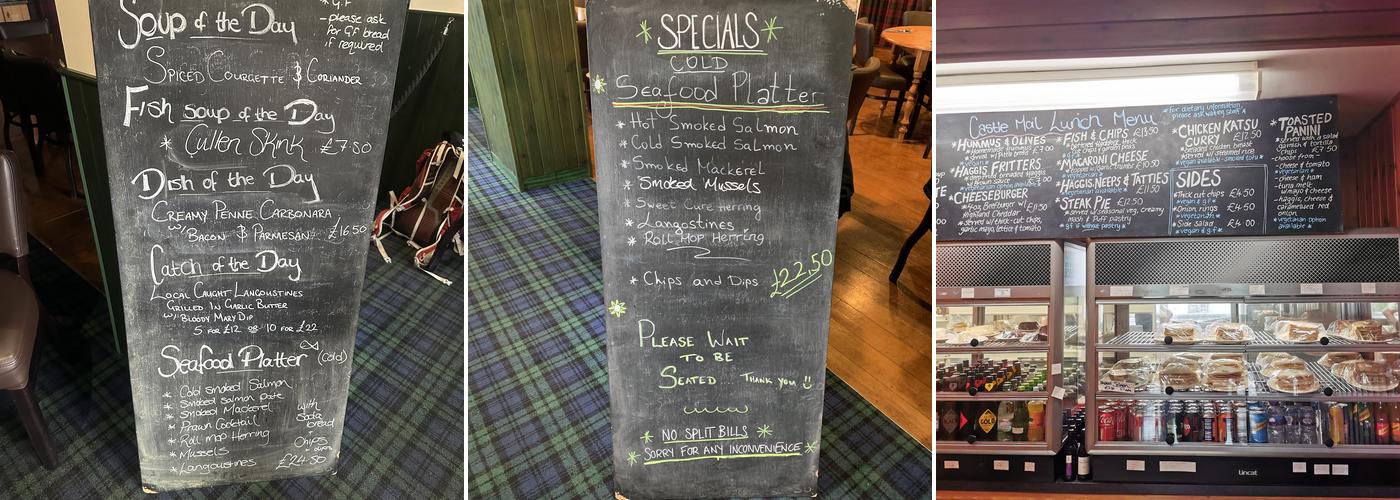 Soup of the Day
* G.F
- please ask
for GF bread
if required
Spiced Courgette & Coriander
Fish soup of the Day
* Cullen Skink £7.50
Dish of the Day
Creamy Penne Carbonara
w/ Bacon & Parmesan £16.50
Catch of the Day
Local Caught Langoustines
Grilled in Garlic Butter
w/ Bloody Mary Dip
5 for £12 or 10 for £22
Seafood Platter (cold)
* Cold smoked Salmon
* Smoked salmon pate
* Smoked Mackerel
* Prawn Cocktail
* Roll mop Herring
* Mussels
* Langoustines
with
soda
bread
Chips
£24.50
* SPECIALS *
COLD
Seafood Platter
* Hot Smoked Salmon
* Cold Smoked Salmon
* Smoked Mackerel
* Smoked Mussels
* Sweet Cure Herring
* Langostines
* Roll Mop Herring
* Chips and Dips £22.50
Please Wait
to be
Seated... Thank you
* NO SPLIT BILLS *
* SORRY FOR ANY INCONVENIENCE *
Castle Mal Lunch Menu
* for dietary information,
please ask waiting staff *
* HUMMUS & OLIVES
* HAGGIS FRITTERS
* CHEESEBURGER
garlic mayo, lettuce & tomato
* FISH & CHIPS £13.50
* MACARONI CHEESE
£10.50
* HAGGIS, NEEPS & TATTIES
£11.50
* STEAK PIE £12.50
* served w/ seasonal veg, creamy
mash & puff pastry
* g.f without pastry *
* CHICKEN KATSU
CURRY £12.50
SIDES
* Thick cut chips £4.50
* vegan & g.f *
* Onion rings £4.50
* vegetarian *
* Side Salad £4.00
* vegan & g.f *
* TOASTED
PANINI
£7.50
- choose from -
- cheese & tomato
- cheese & ham
- tuna melt
w/ mayo & cheese
- haggis, cheese &
caramelised red
onion
* vegetarian option
available *
Lincat